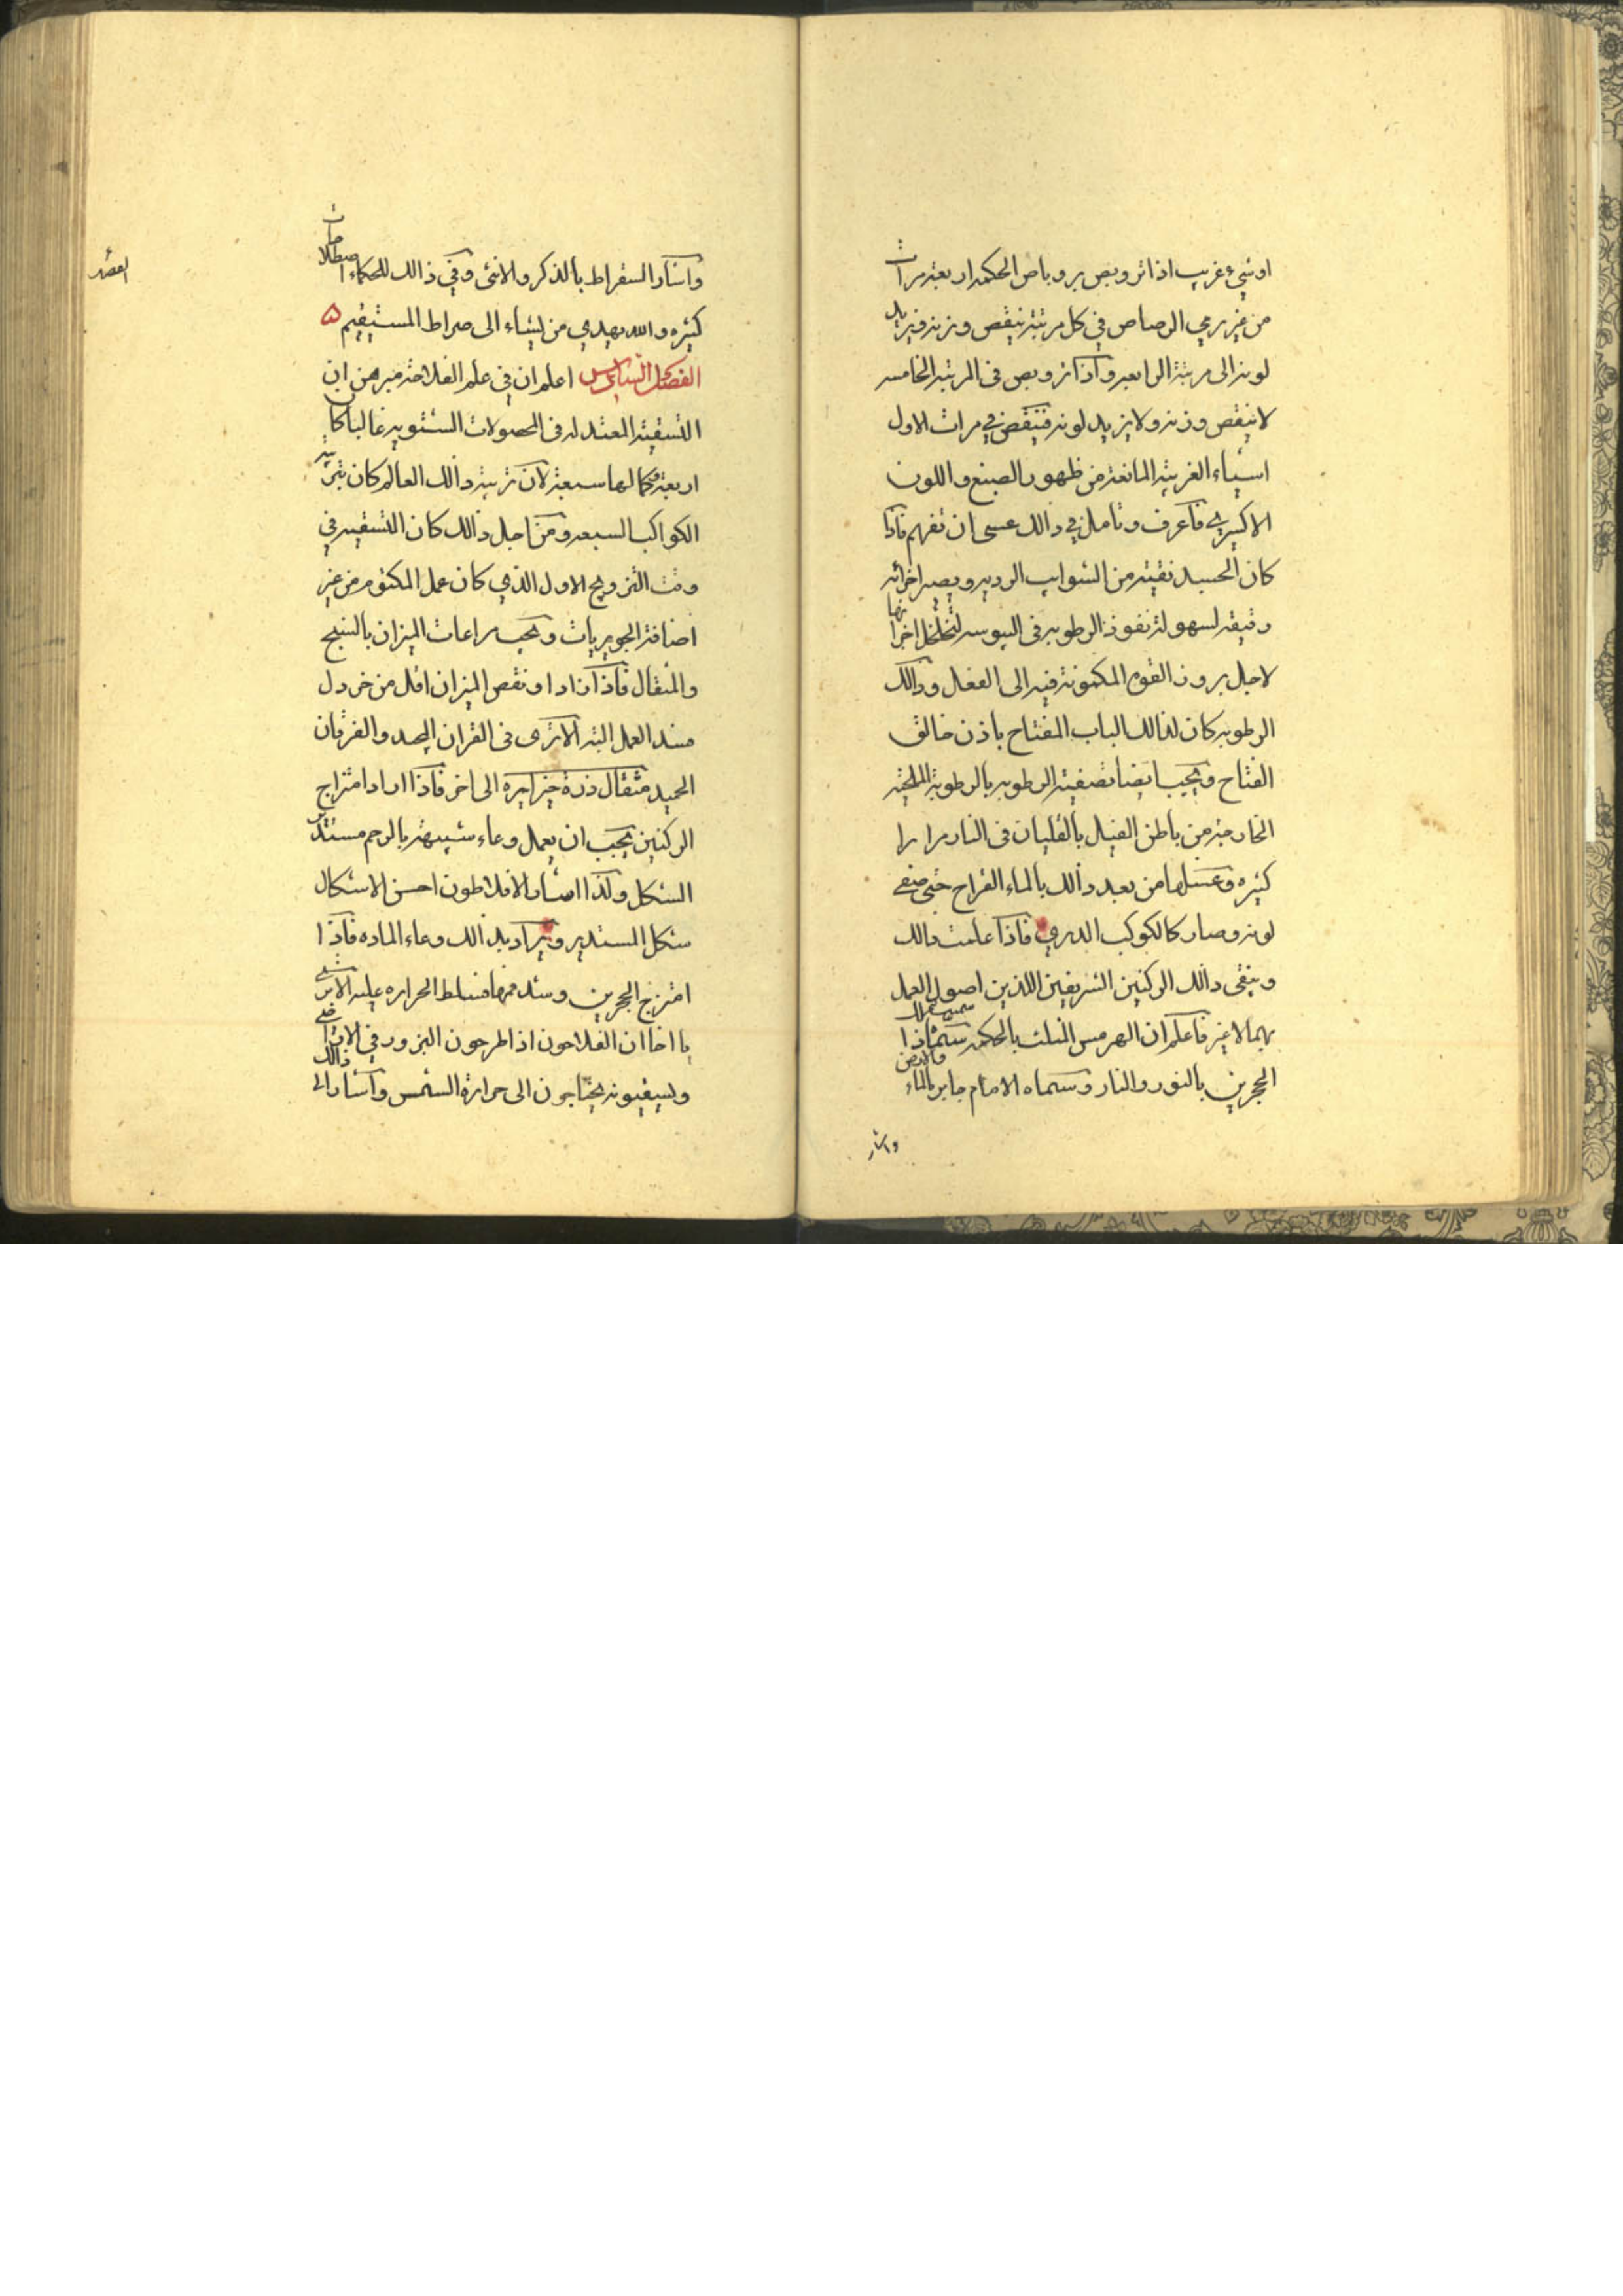 او شيء غريب اذا تروبص بروباص الحكمه اربعة مرات
من غير رمي الرصاص في كل مرتبة ينقص وزنه فيزيد
لونه الى مرتبة الرابعه وآذا تروبص فى المرتبه الخامسه
لا ينقص وزنه ولا يزيد لونه فنيقص في مرات الاول
اسياء الغريبة المانعة من ظهور الصبغ واللون
الاكسيريه فآعرف وتأمل في ذالك عسى ان تفهم فآذا
كان الجسد نقية من الشوايب الرديه ويصير اجزائه
رقيقه لسهولة نفوذ الرطوبه فى اليبوسه لتخلخل اجزائها
لاجل بروز القوه المكمونة فيه الى الفعال وذالك
الرطوبه كان لذالك الباب المفتاح باذن خالق
الفتاح ويجب ايضا تصفية الرطوبه بالرطوبة الملحيّه
الخارجة من باطن الفيل بألغليان فى النار مرارا
كثيره وغسلها من بعد ذالك بالماء القراح حتى صفى
لونه وصار كالكوكب الدري فآذا علمت ذالك
وينقى ذالك الركنين الشريفين اللذين اصول العمل
بهما لا غير فآعلم ان الهرمس المثلث بالحكمه سمّا ذا
الحجرين بالنور والنار وسمّاه الامام جابر بالماء والارض
واشار
وآشار السقراط بألذكر والانثى وفي ذالك للحكماء اصطلاحات
كثيره والله يهدي من يشاء الى صراط المستيقيم ه
الفصل السادس اعلم ان في علم الفلاحة مبرهن ان
التسقية المعتدله فى المحصولات الشتويه غالبا كان
اربعة وكمالها سبعة لآن تربية ذالك العالم كان بتربية
الكواكب السبعه ومن اجل ذالك كان التسقيه في
وقت التزويج الاول الذي كان عمل المكتوم من غير
اضافة الجويريات ويجب مراعات الميزان بالسنج
والمثقال فآذا زادا ونقص الميزان اقل من خردل
فسد العمل البته الا ترى فى القران المجد والفرقان
الحميد مثقال ذرة خيرا يره الى اخر فآذا اراد امتزاج
الركنين يجب ان يعمل وعاء شبيهة بالرحم مستدير
الشكل ولذا اشار الافلاطون احسن الاشكال
شكل المستدير ويراد بذالك وعاء الماده فآذا
امتزج الحجرين وسد فمها فسلط الحراره عليه الا ترى
يا اخا ان الفلاحون اذا طرحون البزور في الاراضي
ويسقيونه يحتاجون الى حرارة الشمس وآشار الى ذالك